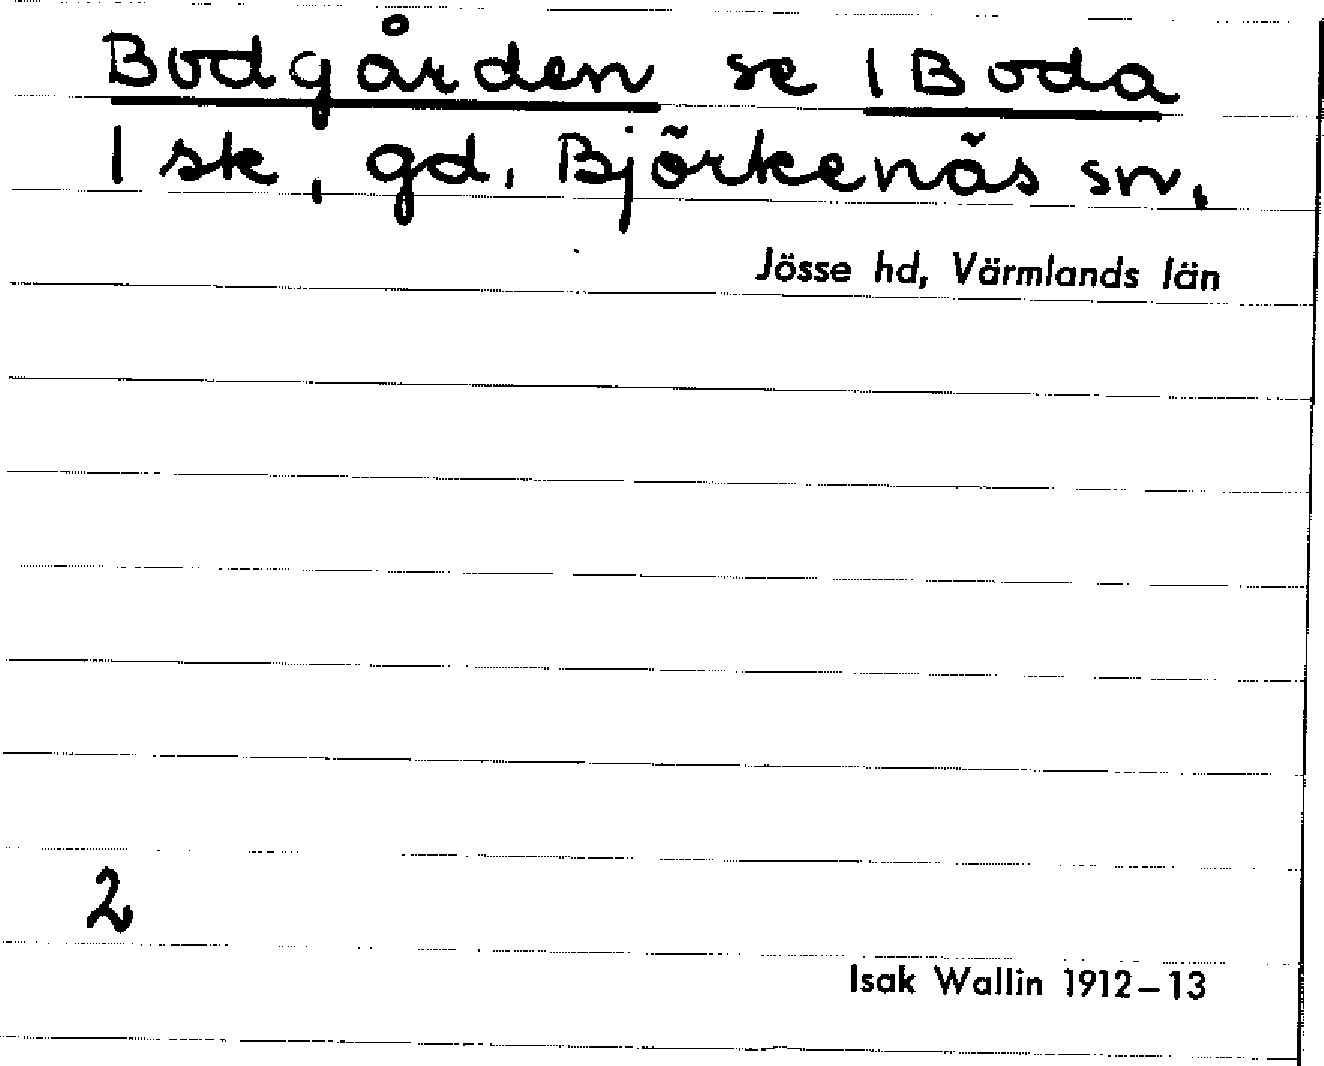 Bodgården se 1 Boda
1 sk, gd, Björkenäs sn.
Jösse hd, Värmlands län
2
Isak Wallin 1912–13